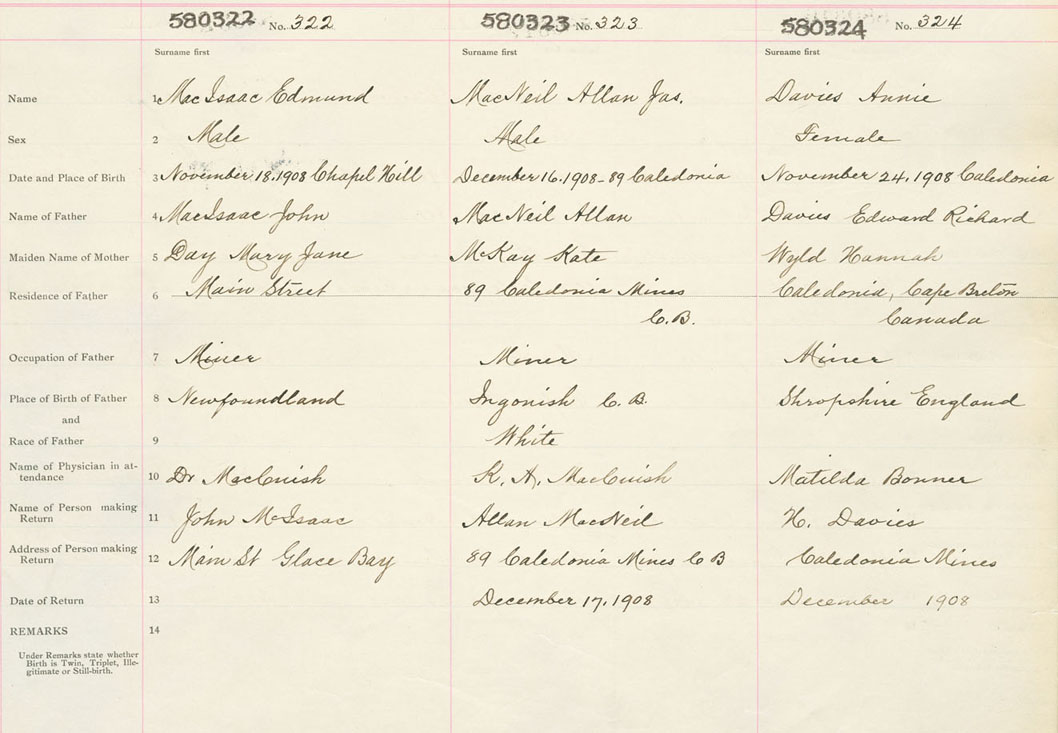 580322 No. 322 580323 No. 323 580324 No. 324
Surname first Surname first Surname first
Name 1 MacIsaac Edmund MacNeil Allan Jas. Davies Annie
Sex 2 Male Male Female
Date and Place of Birth 3 November 18. 1908 Chapel Hill December 16. 1908 - 89 Caledonia November 24. 1908 Caledonia
Name of Father 4 MacIsaac John MacNeil Allan Davies Edward Richard
Maiden Name of Mother 5 Day Mary Jane McKay Kate Wyld Hannah
Residence of Father 6 Main Street 89 Caledonia Mines Caledonia, Cape Breton
C.B. Canada
Occupation of Father 7 Miner Miner Miner
Place of Birth of Father 8 Newfoundland Ingonish C.B. Shropshire England
and
Race of Father 9 White
Name of Physician in at-
tendance 10 Dr MacCuish K. A. MacCuish Matilda Bonner
Name of Person making
Return 11 John McIsaac Allan MacNeil H. Davies
Address of Person making
Return 12 Main St Glace Bay 89 Caledonia Mines C B Caledonia Mines
Date of Return 13 December 17, 1908 December 1908
REMARKS 14
Under Remarks state whether
Birth is Twin, Triplet, Ille-
gitimate or Still-birth.